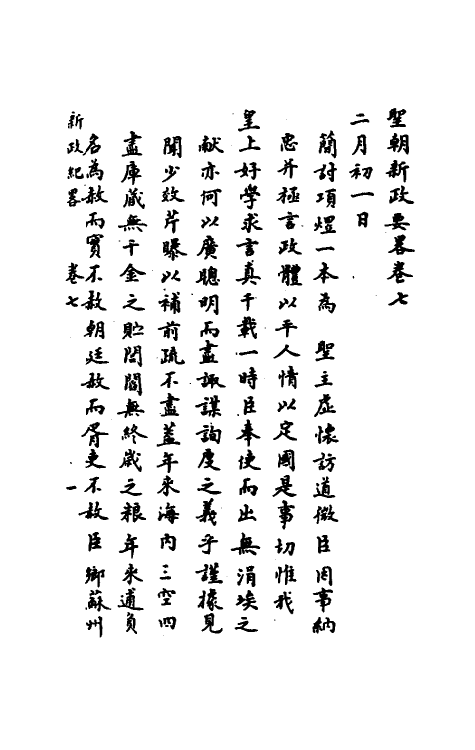 聖朝新政要畧卷七
二月初一日
簡討項煜一本為　聖主虛懷訪道微臣因事納
忠并極言政體以平人情以定國是事切惟我
皇上好學求言真千載一時臣奉使而出無涓埃之
献亦何以廣聰明而盡諏謀詢度之義乎謹據見
聞少效芹曝以補前疏不盡蓋年來海內三空四
盡庫藏無千金之貯閭閻無終歲之粮年來逋負
名為赦而實不赦朝廷赦而胥吏不赦臣鄉蘇州
新政紀畧　卷七　一